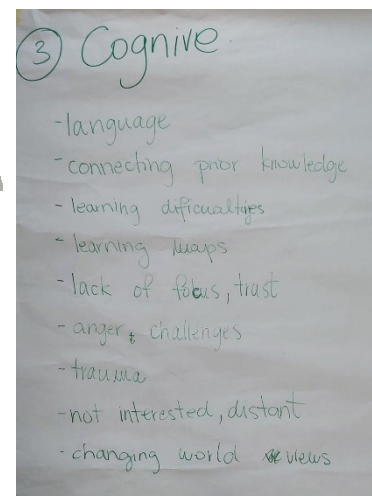 3 Cognive
- language
- connecting prior knowledge
- learning dificualties
- learning maps
- lack of focus, trust
- anger, challenges
- trauma
- not interested, distant
- changing world views